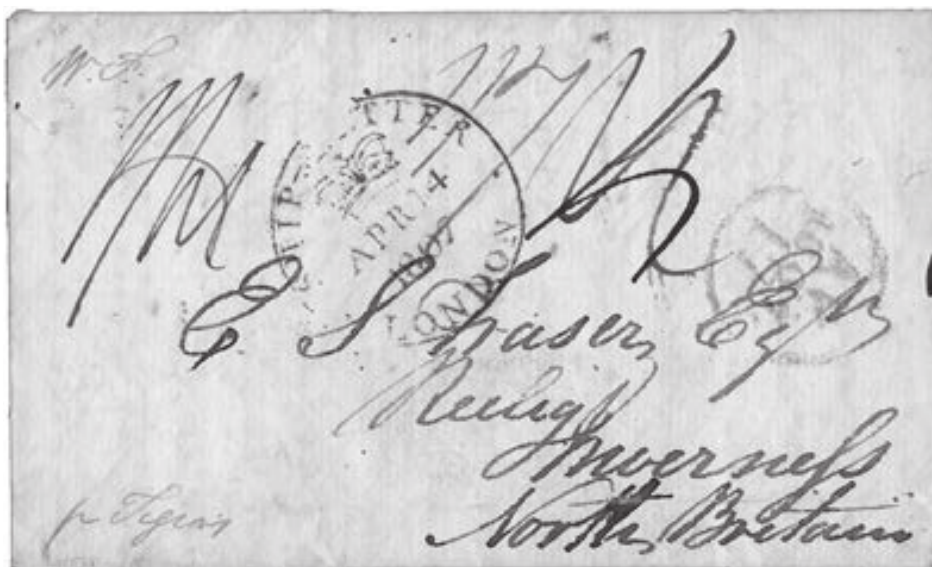 W. F.
SHIP LETTER
APR 14
1807
LONDON
E S Fraser Esqr
Reelig
Inverneſs
North Britain